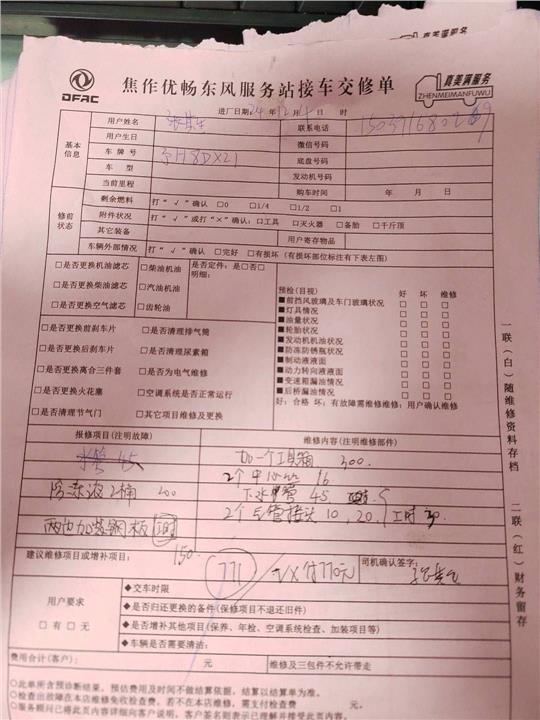 DFAC
焦作优畅东风服务站接车交修单
真美满服务
ZHENMEIMANFUWU
进厂日期:24 年 12 月 4 日 时
基本信息
用户姓名 联系电话
用户生日 微信号码
车牌号 底盘号码
车型 发动机号码
当前里程 购车时间 年 月 日
修前状态
剩余燃料 打“√”确认 □0 □1/4 □1/2 □1
附件状况 打“√”或打“×”确认:□工具 □灭火器 □备胎 □千斤顶
其它装备 用户寄存物品
车辆外部情况 打“√”确认 □完好 □有损坏(有损坏部位标注有下表左图)
□是否更换机油滤芯 □柴油机油 是否定件:是□否□
□是否更换柴油滤芯 □汽油机油 明细:
□是否更换空气滤芯 □齿轮油
□是否更换前刹车片 □是否清理排气筒
□是否更换后刹车片 □是否清理尿素箱
□是否更换离合三件套 □是否为电气维修
□是否更换火花塞 □空调系统是否正常运行
□是否清理节气门 □其它项目维修及更换
预检(目视) 好 坏 维修
■前挡风玻璃及车门玻璃状况 □ □ □
■灯具情况 □ □ □
■油量状况 □ □ □
■轮胎状况 □ □ □
■发动机机油状况 □ □ □
■防冻防锈瓶状况 □ □ □
■制动液液面 □ □ □
■动力转向液液面 □ □ □
■变速箱漏油情况 □ □ □
■后桥漏油情况 □ □ □
好:合格 坏:有故障需维修维修:用户确认维修
报修项目(注明故障) 维修内容(注明维修部件)
水管 45 加一个工具箱 300.
2个中心丝 16
防冻液2桶 200 下水管 45
2个气管接头 10,20, 工时30
两边加装钢板 工时
150.
建议维修项目或增补项目: 771 付770元 司机确认签字:
用户要求
□有 □无
◆交车时限
◆是否归还更换的备件(保修项目不退还旧件)
◆是否增补其他项目(保养、年检、空调系统检查、加装项目等)
◆车辆是否需要清洁:
费用合计(客户): 元 维修及三包件不允许带走
○此单所含预诊断结果,预估费用及时间不做结算依据,结算以结算单为准。
○检查出故障在本维修免收检查费,若不在本维修,需支付检查费 元。
○服务顾问已将此页内容详细向客户说明,客户签名则表示已理解并接受此页内容。
一联(白)随维修资料存档
二联(红)财务留存